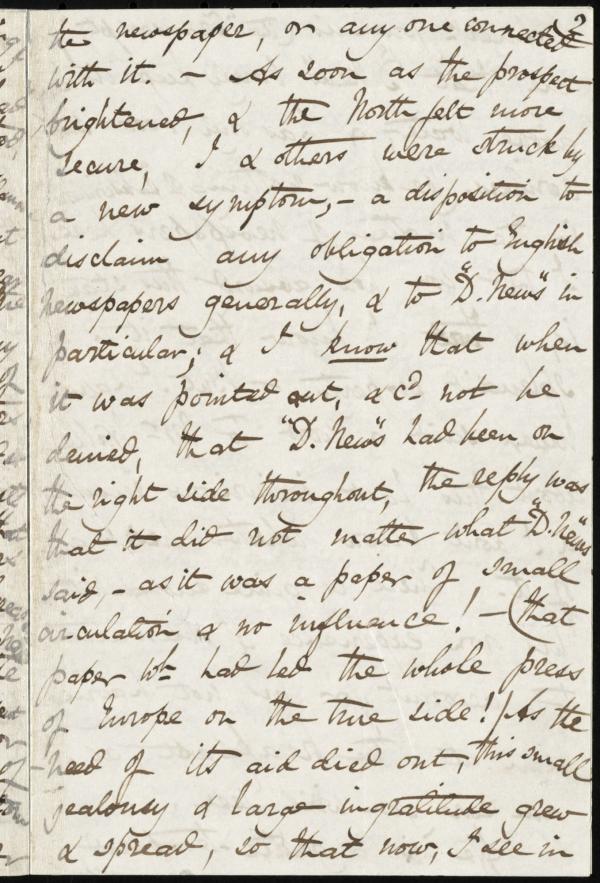 2
the newspaper, or any one connected
with it. – As soon as the prospect
brightened, & the North felt more
secure, I & others were struck by
a new symptom, – a disposition to
disclaim any obligation to English
newspapers generally, & to "D. News" in
particular; & I know that when
it was pointed out, & cd not be
denied, that "D. News" had been on
the right side throughout, the reply was
that it did not matter what "D. News"
said, – as it was a paper of small
circulation & no influence! – (that
paper wh had led the whole press
of Europe on the true side!) As the
need of its aid died out, this small
jealousy & large ingratitude grew
& spread, so that now, I see in